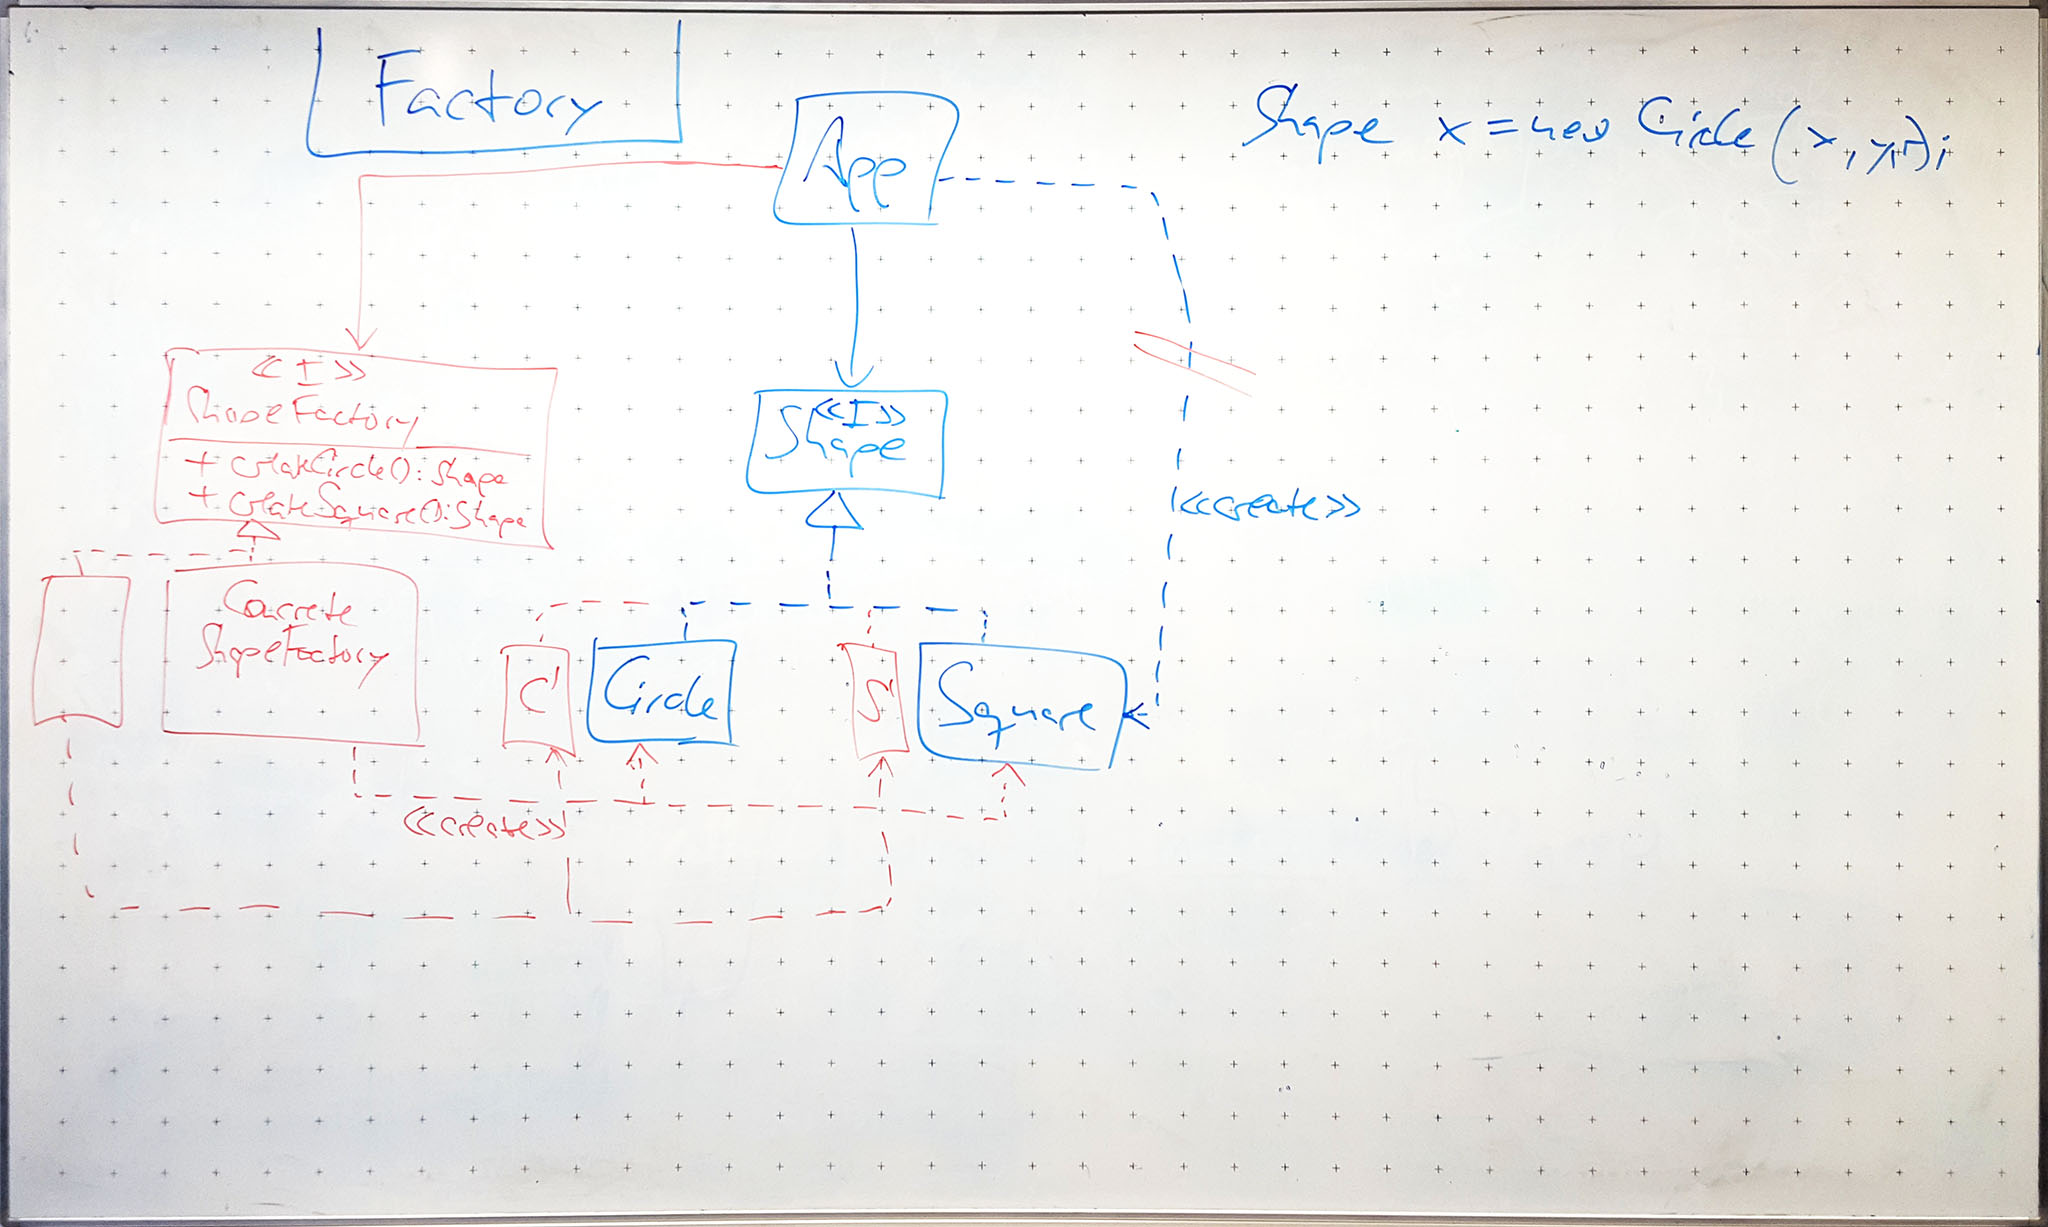 Factory
App
Shape x = new Circle (x, y, r);
<<I>>
ShapeFactory
+ createCircle(): Shape
+ createSquare(): Shape
<<I>>
Shape
<<create>>
Concrete
ShapeFactory
C'
Circle
S'
Square
<<create>>